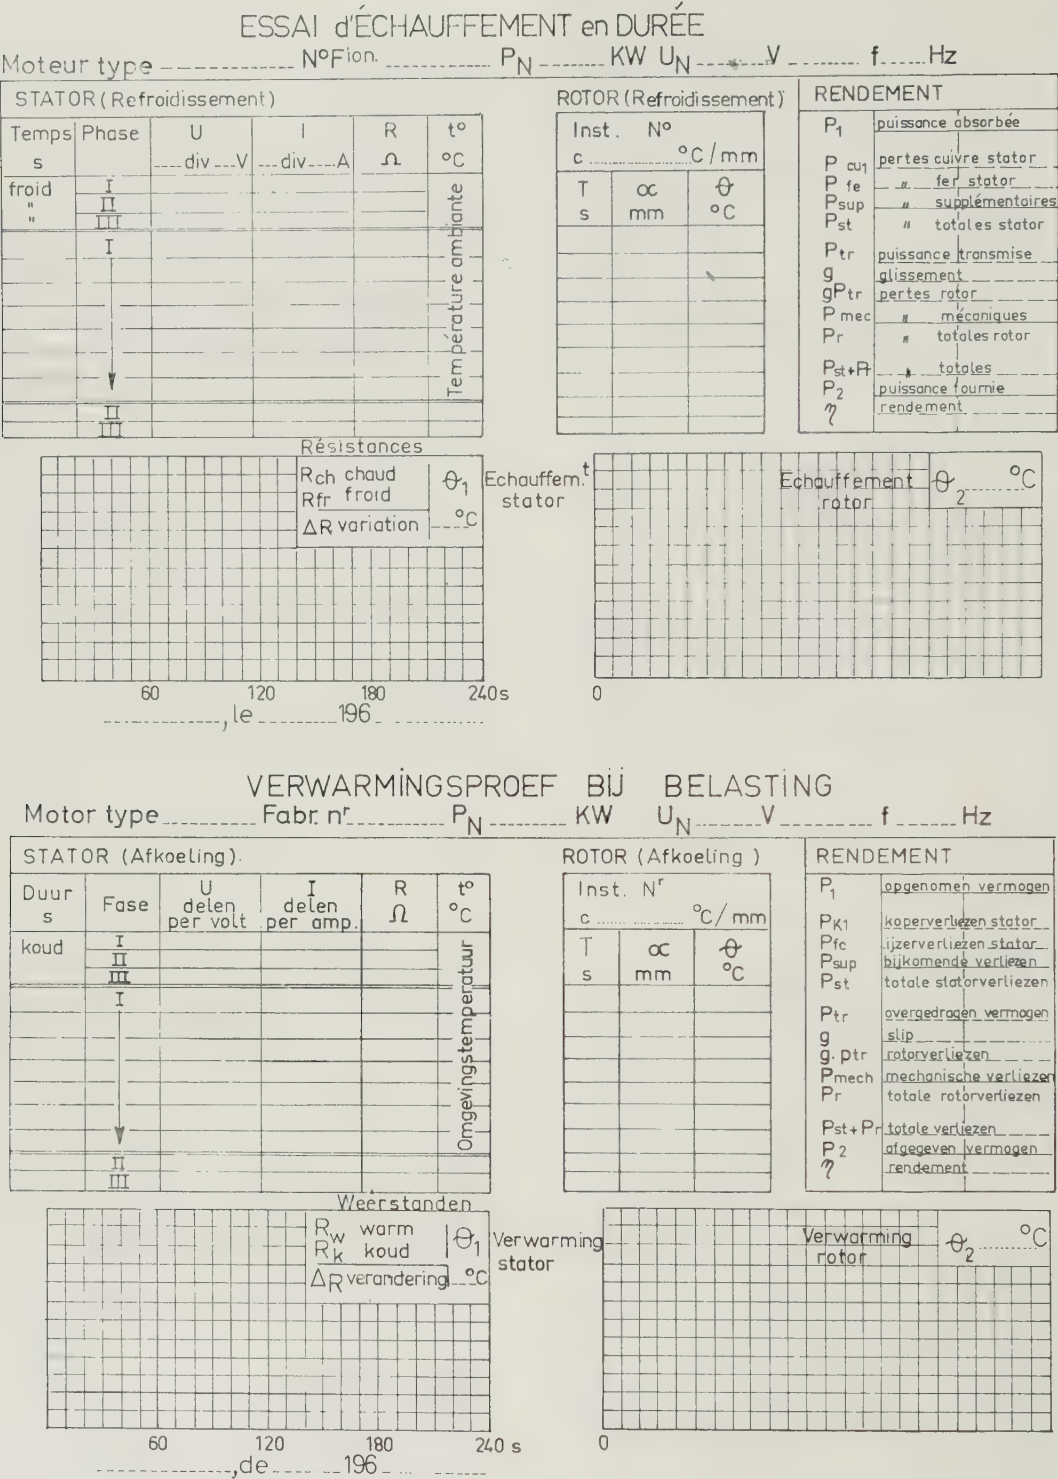 ESSAI d'ÉCHAUFFEMENT en DURÉE
Moteur type N°Fion. P_N KW U_N V f Hz
STATOR (Refroidissement)
Temps Phase U I R t°
s div V div A Ω °C
froid I
" II
" III
I
II
III
Température ambiante
ROTOR (Refroidissement)
Inst. N°
c °C/mm
T α θ
s mm °C
RENDEMENT
P1 puissance absorbée
P cu1 pertes cuivre stator
P fe " fer stator
Psup " supplémentaires
Pst " totales stator
Ptr puissance transmise
g glissement
gPtr pertes rotor
P mec " mécaniques
Pr " totales rotor
Pst+Pr " totales
P2 puissance fournie
η rendement
Résistances
Rch chaud
Rfr froid
ΔR variation
θ1
°C
Echauffem.t
stator
60 120 180 240s
Echauffement
rotor
θ2 °C
0
,le 196
VERWARMINGSPROEF BIJ BELASTING
Motor type Fabr. nr P_N KW U_N V f Hz
STATOR (Afkoeling).
Duur Fase U I R t°
s delen delen Ω °C
per volt per amp.
koud I
II
III
I
II
III
Omgevingstemperatuur
ROTOR (Afkoeling)
Inst. Nr
c °C/mm
T α θ
s mm °C
RENDEMENT
P1 opgenomen vermogen
PK1 koperverliezen stator
Pfc ijzerverliezen stator
Psup bijkomende verliezen
Pst totale statorverliezen
Ptr overgedragen vermogen
g slip
g. ptr rotorverliezen
Pmech mechanische verliezen
Pr totale rotorverliezen
Pst+Pr totale verliezen
P2 afgegeven vermogen
η rendement
Weerstanden
Rw warm
Rk koud
ΔR verandering
θ1
°C
Verwarming
stator
60 120 180 240 s
Verwarming
rotor
θ2 °C
0
,de 196